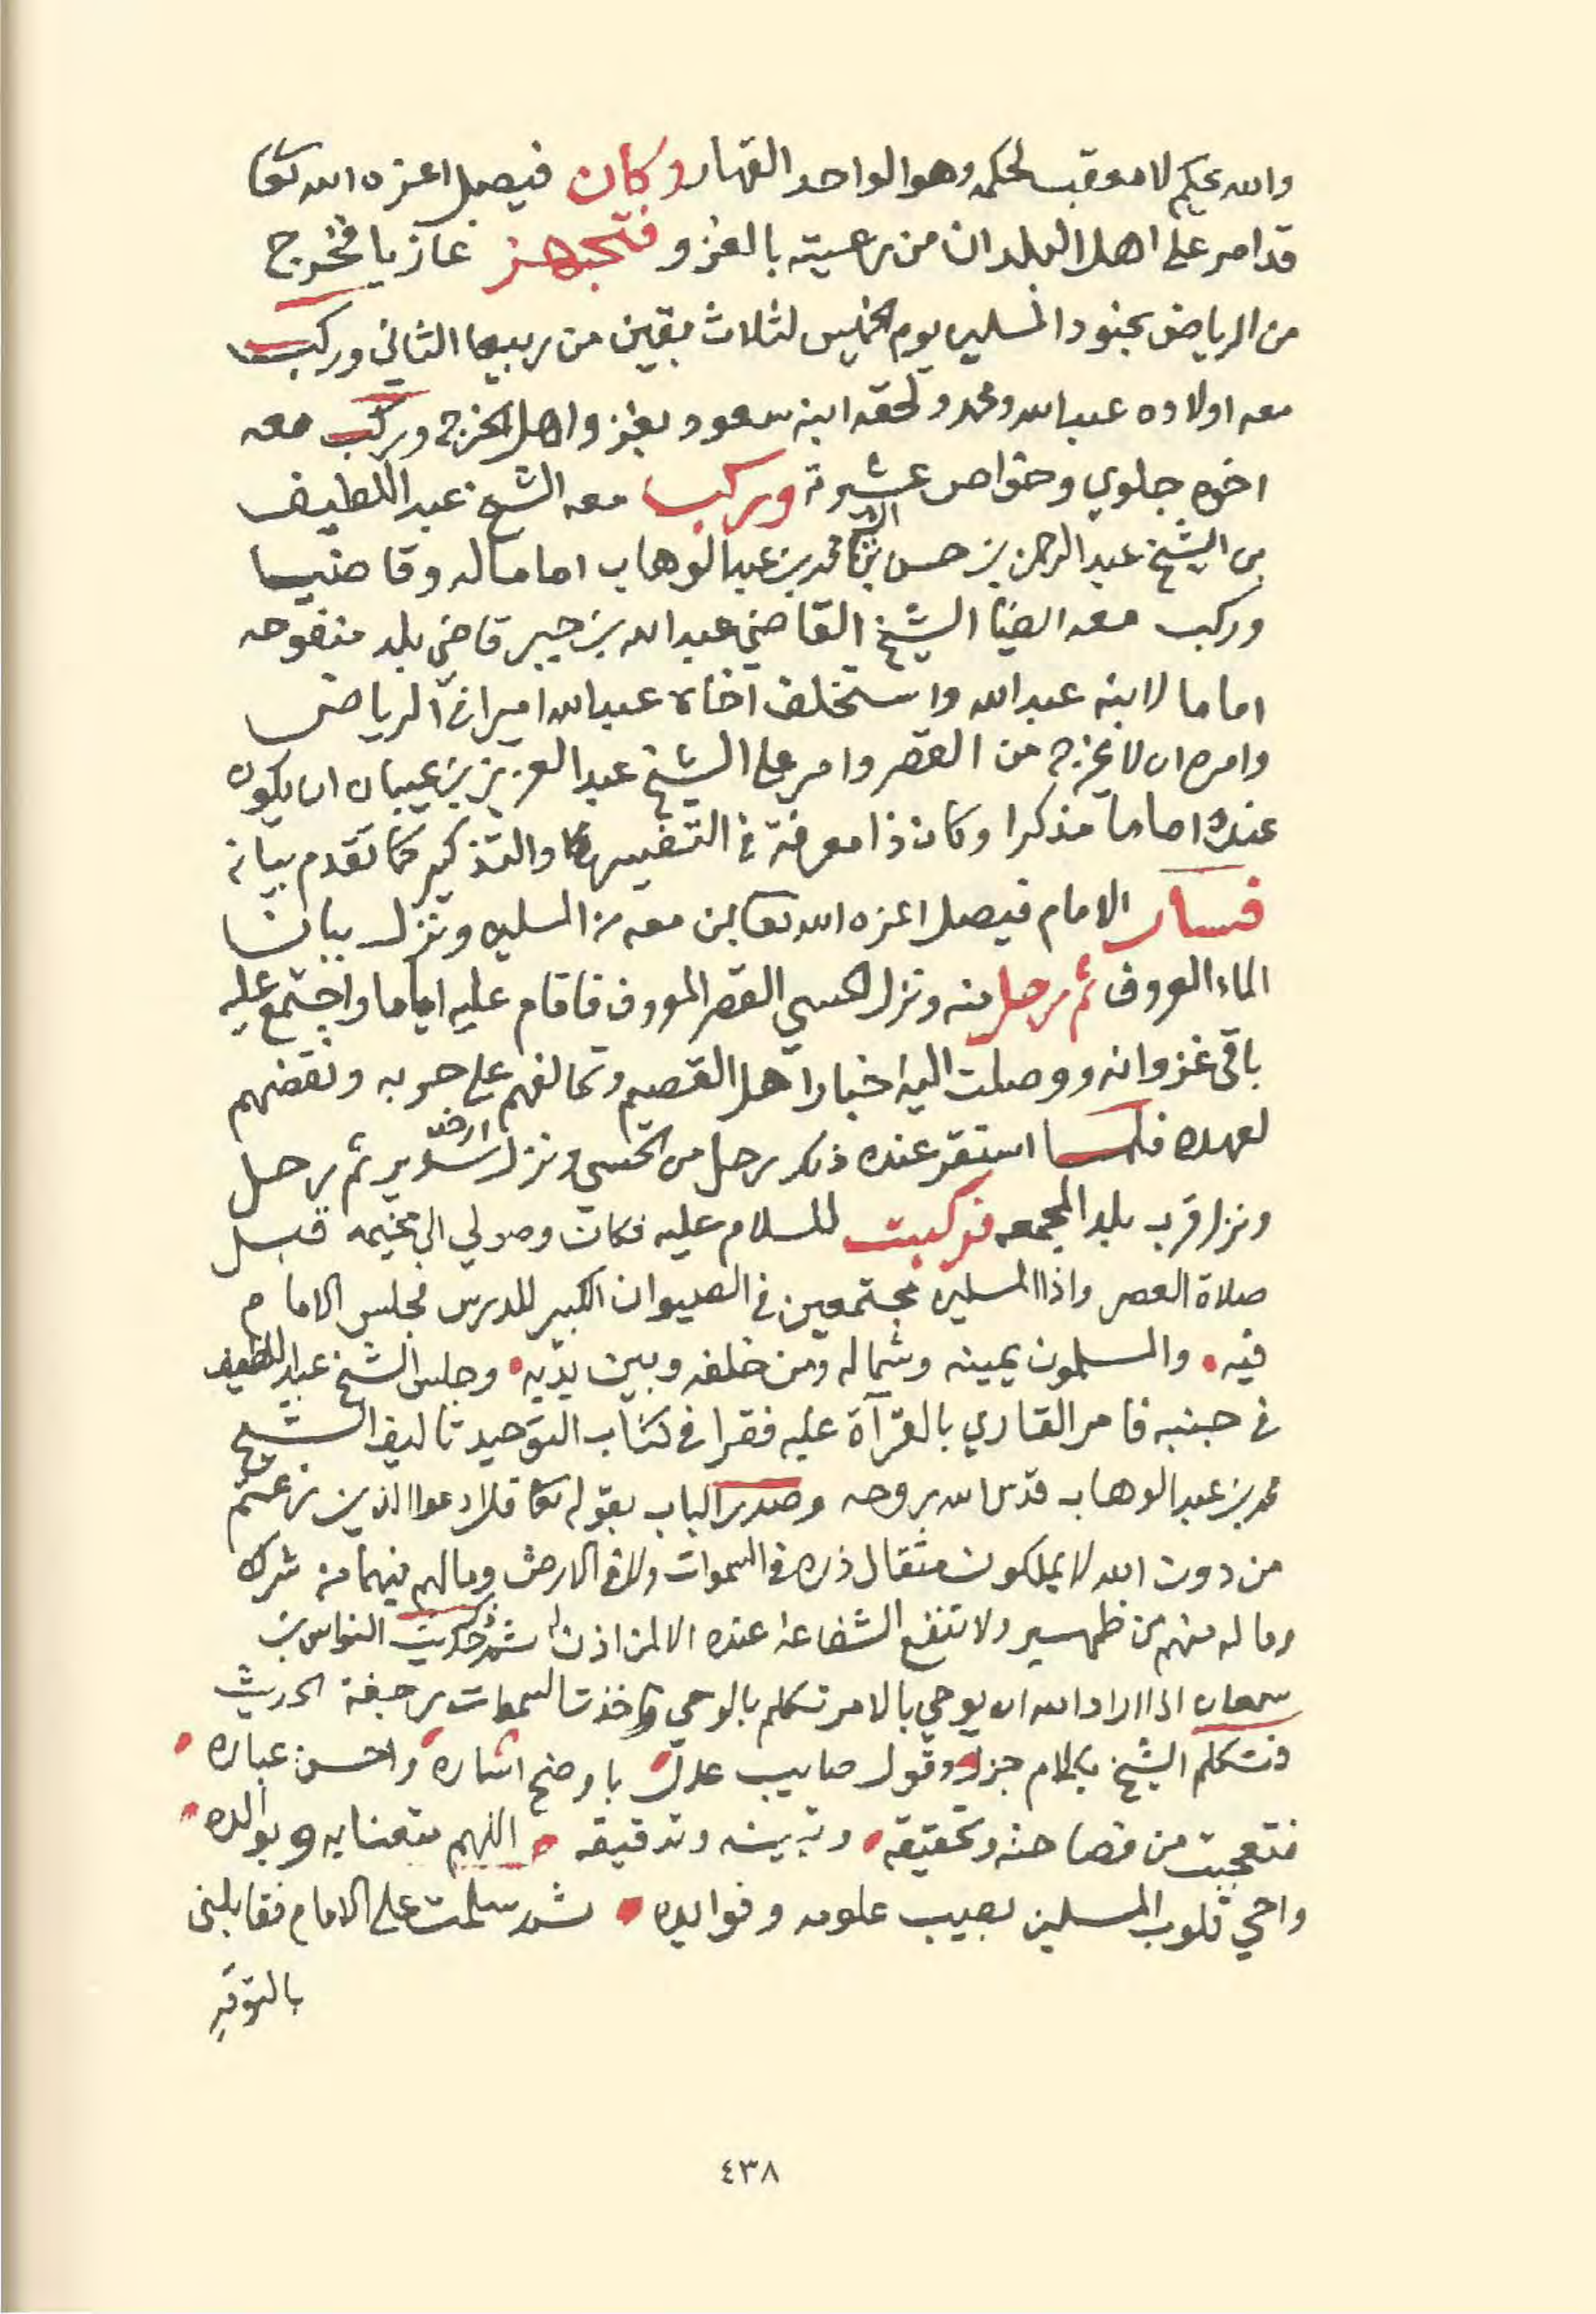 والله يحكم لا معقب لحكمه وهو الواحد القهار وكان فيصل اعزه الله تعا
قد امر على اهل البلدان من رعيته بالغزو فتجهز غازيا فخرج
من الرياض بجنود المسلمين يوم الخميس لثلاث بقين من ربيع الثاني وركب
معه اولاده عبدالله ومحمد ولحقه ابنه سعود بغزو اهل الخرج وركب معه
اخوه جلوي وخواص عشيرته وركب معه الشيخ عبداللطيف
بن الشيخ عبدالرحمن بن حسن بن محمد بن عبدالوهاب اماما له وقاضيا
وركب معه ايضا الشيخ القاضي عبدالله بن جبر قاضي بلد منفوحه
اماما لابنه عبدالله واستخلف اخاه عبدالله اميرا في الرياض
وامره ان لا يخرج من القصر وامر على الشيخ عبدالعزيز بن عيبان ان يكون
عنده اماما مذكرا وكان ذا معرفة في التفسير والتذكير كما تقدم بيانه
فسار الامام فيصل اعزه الله تعا بمن معه من المسلمين ونزل بنبان
الماء المعروف ثم رحل منه ونزل الحسي القصر المعروف فاقام عليه اياما واجتمع عليه
باقي غزوانه ووصلت اليه اخبار اهل القصيم وتحالفهم على حربه ونقضهم
لعهده فلما استقر عنده ذلك رحل من الحسي ونزل ارض سدير ثم رحل
ونزل قرب بلد المجمعه فركبت للسلام عليه فكان وصولي الى مخيمه قبل
صلاة العصر واذا المسلمين مجتمعين في الصيوان الكبير للدرس فجلس الامام
فيه والمسلمون يمينه وشماله ومن خلفه وبين يديه وجلس الشيخ عبداللطيف
في جنبه فامر القاري بالقرآة عليه فقرا في كتاب التوحيد تاليف الشيخ
محمد بن عبدالوهاب قدس الله روحه وصدر الباب بقوله تعا قل ادعوا الذين زعمتم
من دون الله لا يملكون مثقال ذره في السموات ولا في الارض وما لهم فيهما من شرك
وما له منهم من ظهير ولا تنفع الشفاعة عنده الا لمن اذن له ثم حديث النواس بن
سمعان اذا اراد الله ان يوحي بالامر تكلم بالوحي واخذت السموات رجفة الحديث
فتكلم الشيخ بكلام جزل وقول صايب عدل باوضح اشاره واحسن عباره
فتعجبت من فصاحته وتحقيقه وتبيينه وتدقيقه اللهم متعنا به وبوالده
واحي قلوب المسلمين بصيب علومه وفوايده ثم سلمت على الامام فقابلني
بالتوقير
٤٣٨